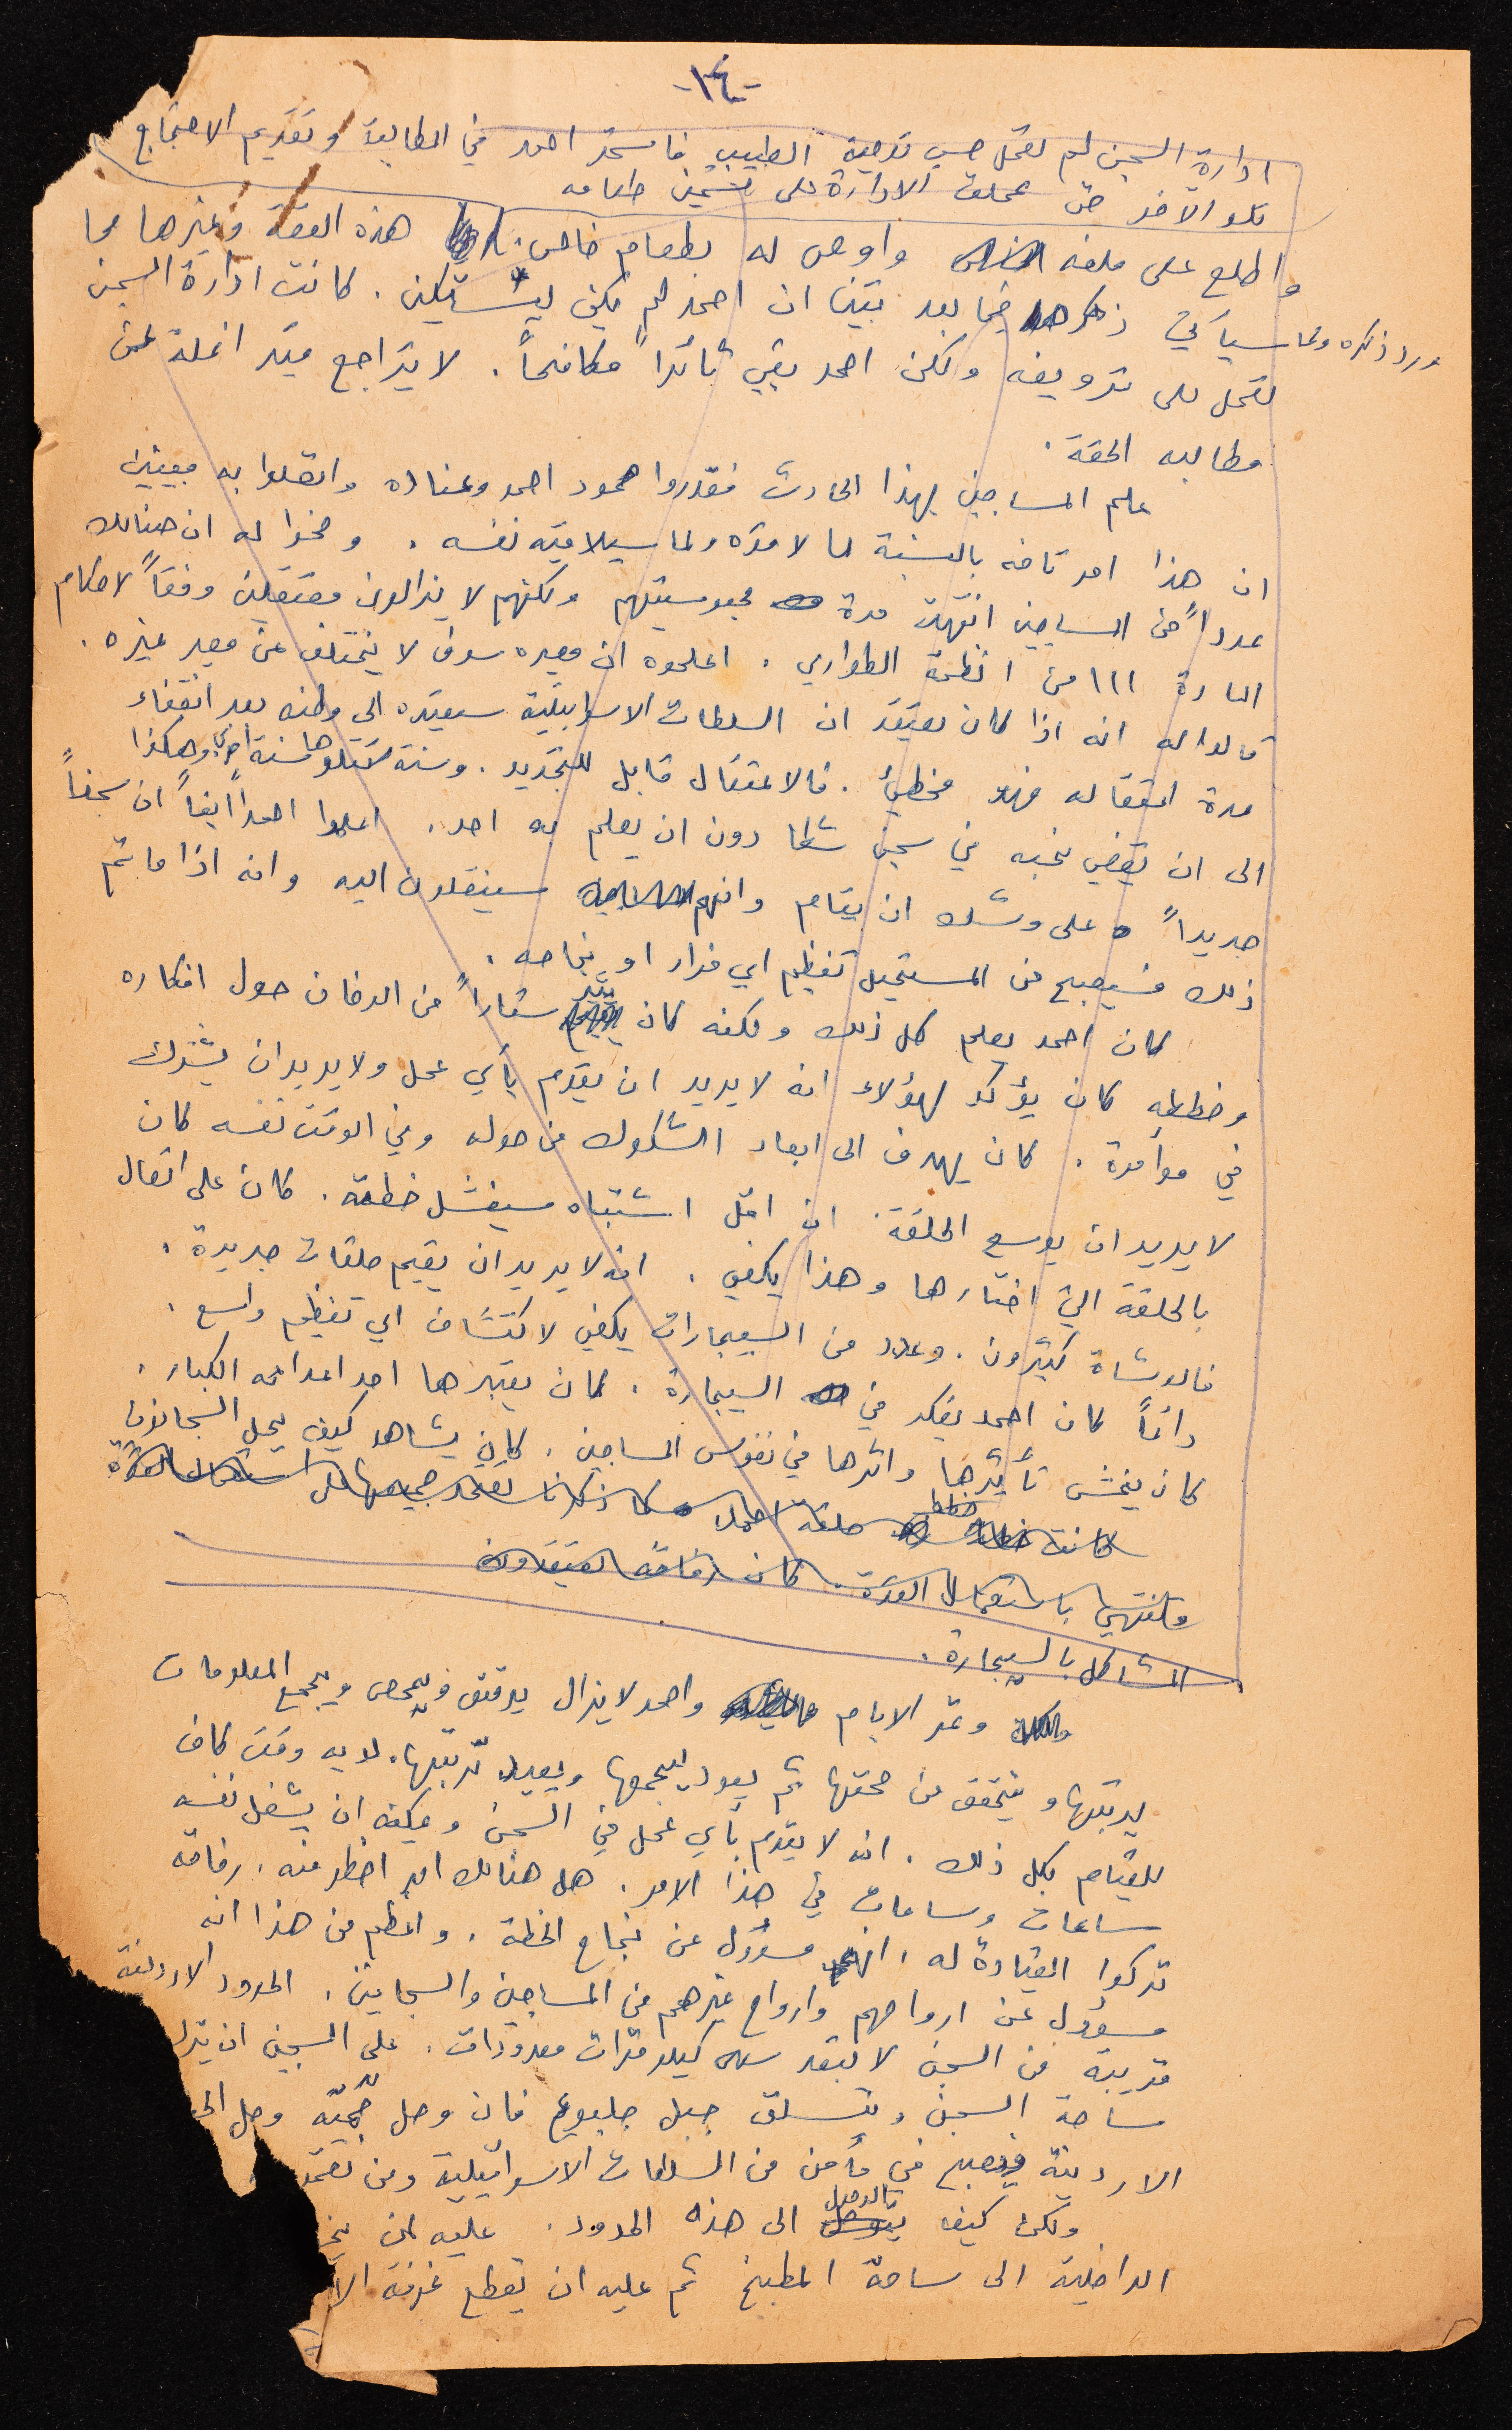 -١٤-
ادارة السجن لم تعمل حسب توصية الطبيب فاستمر احمد في المطالبة وتقديم الاحتجاج
تلو الآخر حتى عملت الادارة على تحسين طعامه
واطلع على ملفه واوصى له بطعام خاص. هذه القصة وغيرها مما
ورد ذكره ومما سيأتي ذكره فيما بعد تبين ان احمد لم يكن ليستكين. كانت ادارة السجن
تعمل على ترويضه ولكن احمد بقي ثائراً مكافحاً. لا يتراجع قيد انملة عن
مطالبه الحقة.
علم المساجين بهذا الحادث فقدروا صمود احمد وعناده واتصلوا به مبينين
ان هذا امر تافه بالنسبة لما لاقوه ولما سيلاقيه نفسه. وضحوا له ان هنالك
عدداً من المساجين انتهت مدة محبوسيتهم ولكنهم لا يزالون معتقلين وفقاً لاحكام
المادة ١١١ من انظمة الطوارئ. اعلموه ان مصيره سوف لا يختلف عن مصير غيره.
قالوا له انه اذا كان يعتقد ان السلطات الاسرائيلية ستعيده الى وطنه بعد انقضاء
مدة اعتقاله فهو مخطئ. فالاعتقال قابل للتجديد. وسنة تتلوها سنة اخرى وهكذا
الى ان يقضي نحبه في سجن شطا دون ان يعلم به احد. اعلموا احمد ايضاً ان سجناً
جديداً على وشك ان يقام وانهم سينقلون اليه وانه اذا ما تم
ذلك فسيصبح من المستحيل تنظيم اي فرار او نجاحه.
كان احمد يعلم كل ذلك ولكنه كان يقيم ستاراً من الدخان حول افكاره
وخططه كان يؤكد لهؤلاء انه لا يريد ان يقوم بأي عمل ولا يريد ان يشترك
في مؤامرة. كان يهدف الى ابعاد الشكوك من حوله وفي الوقت نفسه كان
لا يريد ان يوسع الحلقة. ان اقل اشتباه سيفشل خطته. كان على اتصال
بالحلقة التي اختارها وهذا يكفي. انه لا يريد ان يقيم حلقات جديدة.
فالوشاة كثيرون. وعدد من السيجارات يكفي لاكتشاف اي تنظيم واسع.
دائماً كان احمد يفكر في السيجارة. كان يعتبرها احد اعدائه الكبار.
كان يخشى تأثيرها واثرها في نفوس المساجين. كان يشاهد كيف يحل السجانون
كانت خطط حلقة احمد كما ذكرنا تعتمد جميعها على استعمال القوة
وتنتهي باستعمال القوة. كان رفاقه يعتقدون
المشاكل بالسيجارة.
وتمر الايام واحمد لا يزال يدقق ويمحص ويجمع المعلومات
يرتبها ويتحقق من صحتها ثم يعود ليجمعها ويعيد ترتيبها. لديه وقت كاف
للقيام بكل ذلك. انه لا يقوم بأي عمل في السجن ويمكنه ان يشغل نفسه
ساعات وساعات في هذا الامر. هل هنالك امر اخطر منه. رفاقه
تركوا القيادة له. انه مسؤول عن نجاح الخطة. واعظم من هذا انه
مسؤول عن ارواحهم وارواح غيرهم من المساجين والسجانين. الحدود الاردنية
قريبة من السجن لا تبعد سوى كيلومترات معدودات. على السجين ان يترك
ساحة السجن ويتسلق جبل جلبوع فان وصل قمته وصل الح
الاردنية ويصبح في مأمن من السلطات الاسرائيلية ومن
ولكن كيف الوصول الى هذه الحدود. عليه ان يخ
الداخلية الى ساحة المطبخ ثم عليه ان يقطع غرفة الا